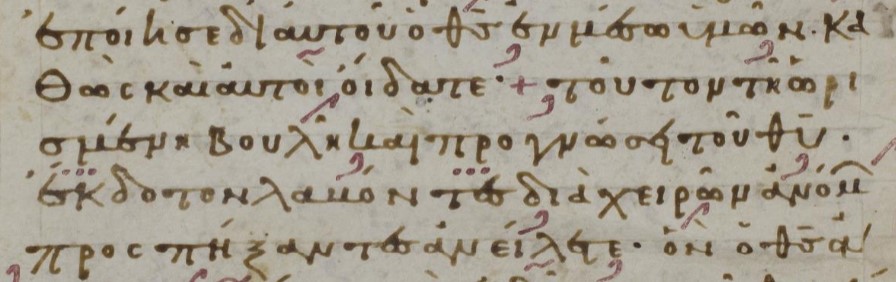 ἐποίησε δι αυτοῦ ὁ θς ἐν μέσω ὑμῶν· κα
θὼς καὶ αυτοὶ οίδατε· + τοῦτον τῆ ὡρι
σμένη βουλῆ καὶ προγνώσει τοῦ θυ·
ἔκδοτον λαβόντες διὰ χειρῶν ἀνόμ
προσπήξαντες ἀνείλετε· ὃν ὁ θς ἀ